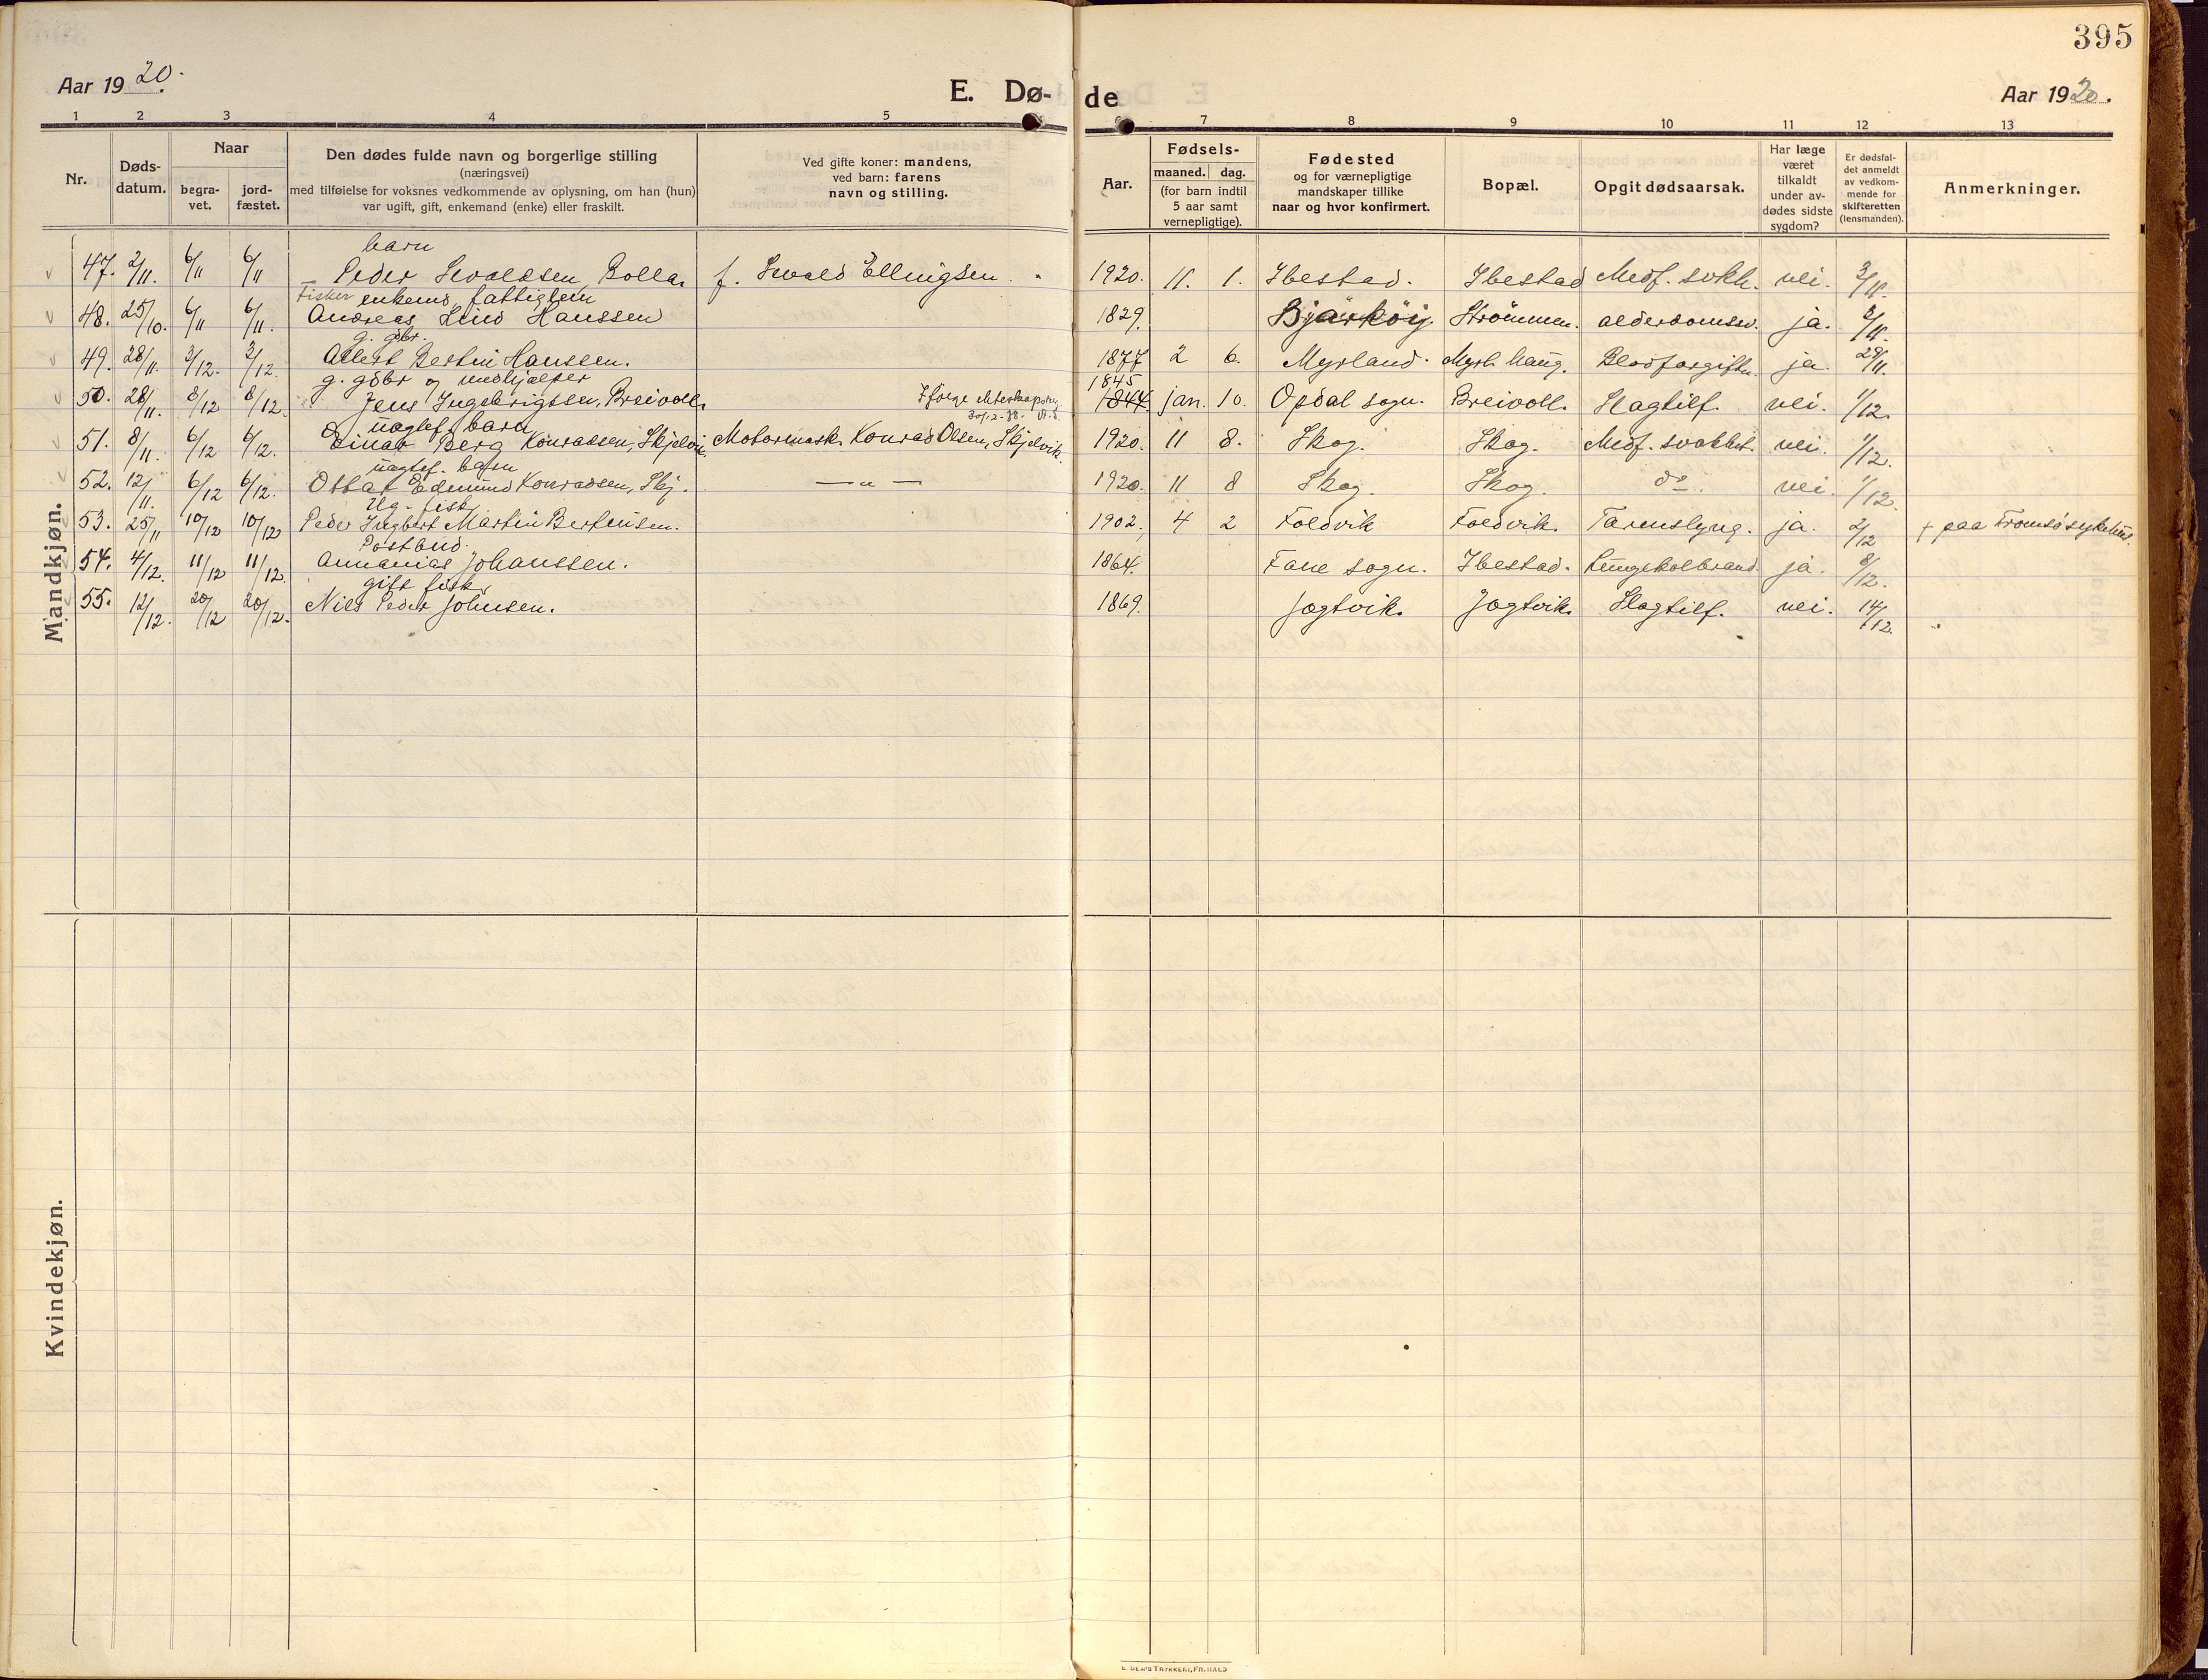 395
Aar 1920.
E. Dø-
de
Aar 1920.
1 2 3 4 5 6 7 8 9 10 11 12 13
Nr.
Døds-
datum.
Naar
begra-
vet.
jord-
fæstet.
Den dødes fulde navn og borgerlige stilling
(næringsvei)
med tilføielse for voksnes vedkommende av oplysning, om han (hun)
var ugift, gift, enkemand (enke) eller fraskilt.
Ved gifte koner: mandens,
ved barn: farens
navn og stilling.
Aar.
Fødsels-
maaned. dag.
(for barn indtil
5 aar samt
vernepligtige).
Fødested
og for værnepligtige
mandskaper tillike
naar og hvor konfirmert.
Bopæl.
Opgit dødsaarsak.
Har læge
været
tilkaldt
under av-
dødes sidste
sygdom?
Er dødsfal-
det anmeldt
av vedkom-
mende for
skifteretten
(lensmanden).
Anmerkninger.
Mandkjøn.
barn
47. 2/11. 6/11 6/11 Peder Sevaldsen, Rolla. f. Sevald Ellingsen. 1920. 11. 1. Ibestad. Ibestad Medf. svkh. nei. 3/11.
Fisker enkemd, fattiglem
48. 25/10. 6/11 6/11. Andreas Lind Hanssen 1829. Bjarköy. Strömmen. alderdomssv. ja. 2/11.
g. gbr.
49. 28/11. 3/12. 3/12. Albert Bertin Hanssen. 1877 2 6. Myrland. Myrl. haug. Blodforgiftn. ja. 29/11.
g. gbr og medhjælper
1845
50. 28/11. 8/12 8/12. Jens Ingebrigtsen, Breivoll. Ifølge 30/12-38. 1844 jan. 10. Opdal sogn. Breivoll. Slagtilf. nei. 1/12.
uegtef. barn
51. 8/11. 6/12 6/12. Einar Berg Konradsen, Skjelvik. Motormask. Konrad Olsen, Skjelvik. 1920. 11 8. Skog. Skog. Medf. svakhet. nei. 1/12.
uegtef. barn
52. 12/11. 6/12 6/12. Ottar Edmund Konradsen, Skj. — „ — 1920. 11 8 Skog. Skog. do. nei. 1/12.
Ug. fisk.
53. 25/11 10/12 10/12 Peder Ingbert Martin Bertinsen. 1902. 4 2 Foldvik Foldvik. Tarmslyng. ja. 2/12 † paa Tromsö sykehus.
Postbud.
54. 4/12. 11/12 11/12. Annanias Johanssen. 1864. Fane sogn. Ibestad. Lungekolbrand. ja. 8/12.
gift fisk.
55. 12/12. 20/12 20/12. Nils Peder Johnsen. 1869. Jogtvik. Jogtvik. Slagtilf. nei. 14/12.
Kvindekjøn.